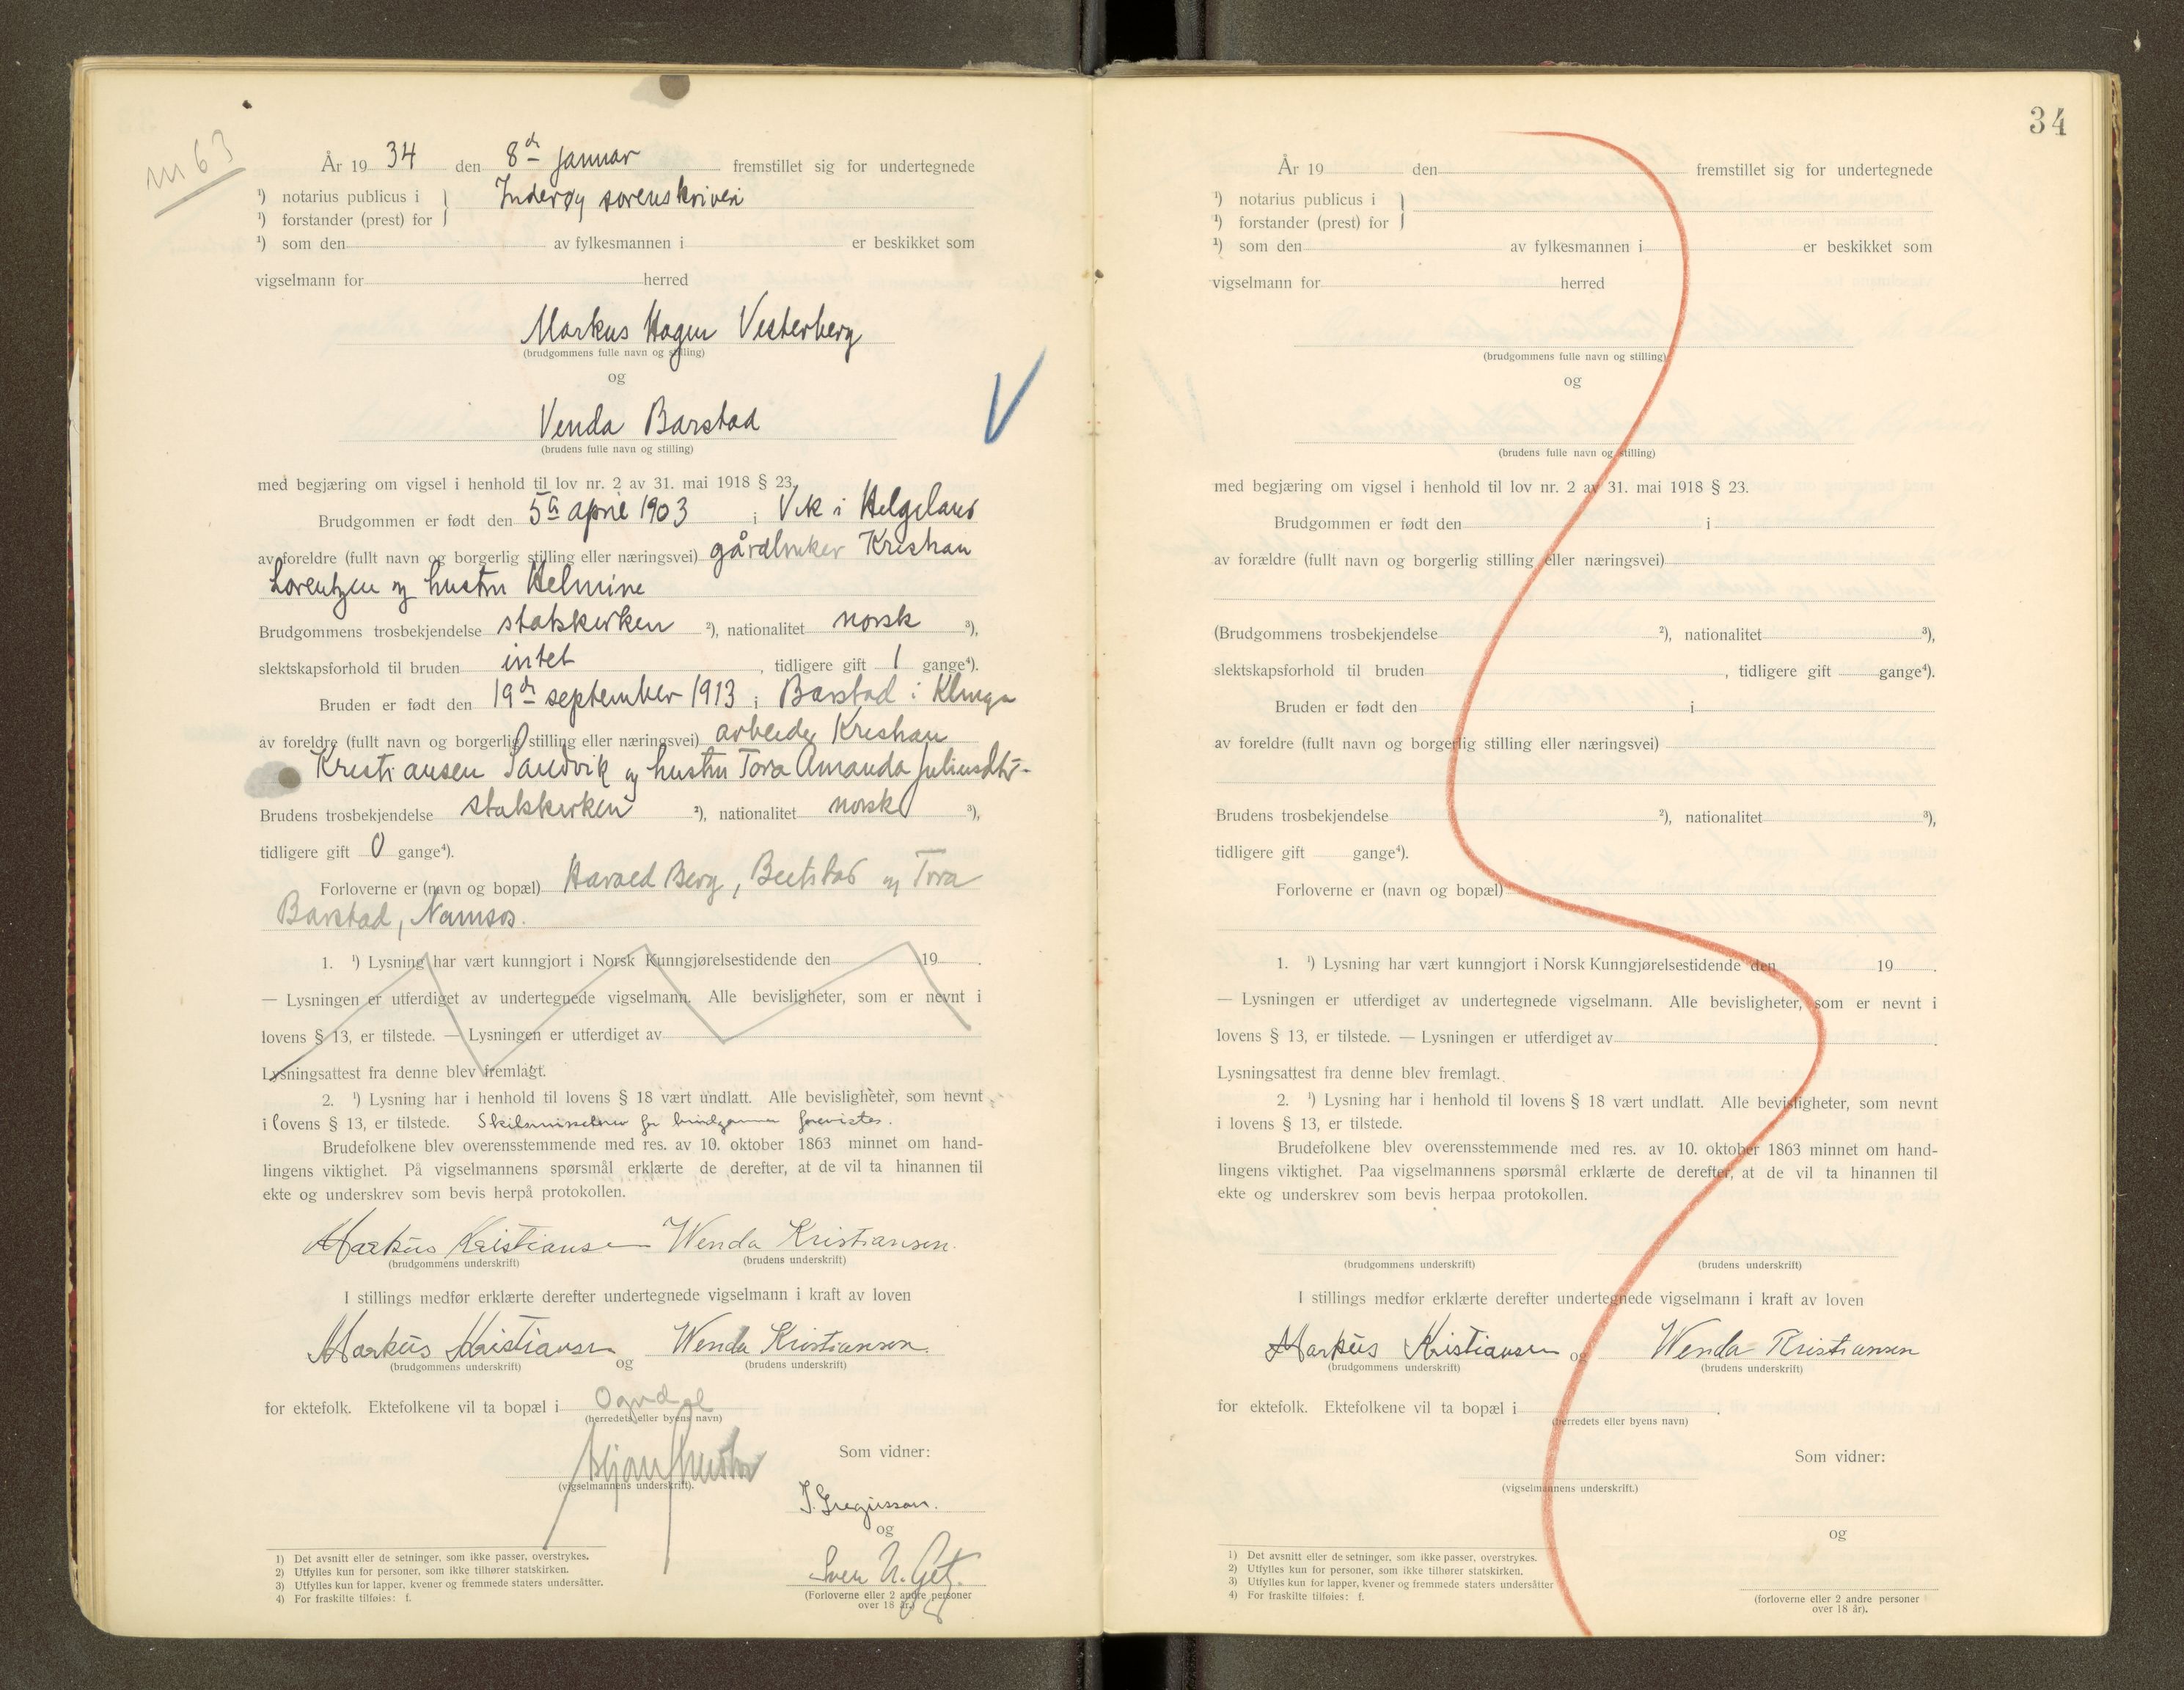 nr 63
År 19 34 den 8de januar fremstillet sig for undertegnede
¹) notarius publicus i } Inderøy sorenskriveri
¹) forstander (prest) for
¹) som den av fylkesmannen i er beskikket som
vigselmann for herred
Markus Hagen Vesterberg
(brudgommens fulle navn og stilling)
og
Venda Barstad
(brudens fulle navn og stilling)
med begjæring om vigsel i henhold til lov nr. 2 av 31. mai 1918 § 23.
Brudgommen er født den 5te april 1903 i Vik i Helgeland
av foreldre (fullt navn og borgerlig stilling eller næringsvei) gårdbruker Kristian
Lorentzen og hustru Helmine
Brudgommens trosbekjendelse statskirken ²), nationalitet norsk ³),
slektskapsforhold til bruden intet , tidligere gift 1 gange⁴).
Bruden er født den 19de september 1913 i Barstad i Klinga
av foreldre (fullt navn og borgerlig stilling eller næringsvei) arbeider Kristian
Kristiansen Sandvik og hustru Tora Amanda Juliusdtr.
Brudens trosbekjendelse statskirken ²), nationalitet norsk ³),
tidligere gift 0 gange⁴).
Forloverne er (navn og bopæl) Harald Berg, Beitstad og Tora
Barstad, Namsos.
1. ¹) Lysning har vært kunngjort i Norsk Kunngjørelsestidende den 19 .
— Lysningen er utferdiget av undertegnede vigselmann. Alle bevisligheter, som er nevnt i
lovens § 13, er tilstede. — Lysningen er utferdiget av
Lysningsattest fra denne blev fremlagt.
2. ¹) Lysning har i henhold til lovens § 18 vært undlatt. Alle bevisligheter, som nevnt
i lovens § 13, er tilstede. Skilsmissebrev for brudgommen forevistes.
Brudefolkene blev overensstemmende med res. av 10. oktober 1863 minnet om hand-
lingens viktighet. På vigselmannens spørsmål erklærte de derefter, at de vil ta hinannen til
ekte og underskrev som bevis herpå protokollen.
Markus Kristiansen Wenda Kristiansen.
(brudgommens underskrift) (brudens underskrift)
I stillings medfør erklærte derefter undertegnede vigselmann i kraft av loven
Markus Kristiansen og Wenda Kristiansen.
(brudgommens underskrift) (brudens underskrift)
for ektefolk. Ektefolkene vil ta bopæl i Ogndal
(herredets eller byens navn)
Som vidner:
(vigselmannens underskrift).
og
(Forloverne eller 2 andre personer
over 18 år.)
1) Det avsnitt eller de setninger, som ikke passer, overstrykes.
2) Utfylles kun for personer, som ikke tilhører statskirken.
3) Utfylles kun for lapper, kvener og fremmede staters undersåtter.
4) For fraskilte tilføies: f.
34
År 19 den fremstillet sig for undertegnede
¹) notarius publicus i }
¹) forstander (prest) for
¹) som den av fylkesmannen i er beskikket som
vigselmann for herred
(brudgommens fulle navn og stilling)
og
(brudens fulle navn og stilling)
med begjæring om vigsel i henhold til lov nr. 2 av 31. mai 1918 § 23.
Brudgommen er født den i
av forældre (fullt navn og borgerlig stilling eller næringsvei)
(Brudgommens trosbekjendelse ²), nationalitet ³),
slektskapsforhold til bruden , tidligere gift gange⁴).
Bruden er født den i
av foreldre (fullt navn og borgerlig stilling eller næringsvei)
Brudens trosbekjendelse ²), nationalitet ³),
tidligere gift gange⁴).
Forloverne er (navn og bopæl)
1. ¹) Lysning har vært kunngjort i Norsk Kunngjørelsestidende den 19 .
— Lysningen er utferdiget av undertegnede vigselmann. Alle bevisligheter, som er nevnt i
lovens § 13, er tilstede. — Lysningen er utferdiget av .
Lysningsattest fra denne blev fremlagt.
2. ¹) Lysning har i henhold til lovens § 18 vært undlatt. Alle bevisligheter, som nevnt
i lovens § 13, er tilstede.
Brudefolkene blev overensstemmende med res. av 10. oktober 1863 minnet om hand-
lingens viktighet. Paa vigselmannens spørsmål erklærte de derefter, at de vil ta hinannen til
ekte og underskrev som bevis herpaa protokollen.
(brudgommens underskrift) (brudens underskrift)
I stillings medfør erklærte derefter undertegnede vigselmann i kraft av loven
Markus Kristiansen og Wenda Kristiansen
(brudgommens underskrift) (brudens underskrift)
for ektefolk. Ektefolkene vil ta bopæl i .
(herredets eller byens navn)
Som vidner:
(vigselmannens underskrift.)
og
(forloverne eller 2 andre personer
over 18 år).
1) Det avsnitt eller de setninger, som ikke passer, overstrykes.
2) Utfylles kun for personer, som ikke tilhører statskirken.
3) Utfylles kun for lapper, kvener og fremmede staters undersåtter
4) For fraskilte tilføies: f.